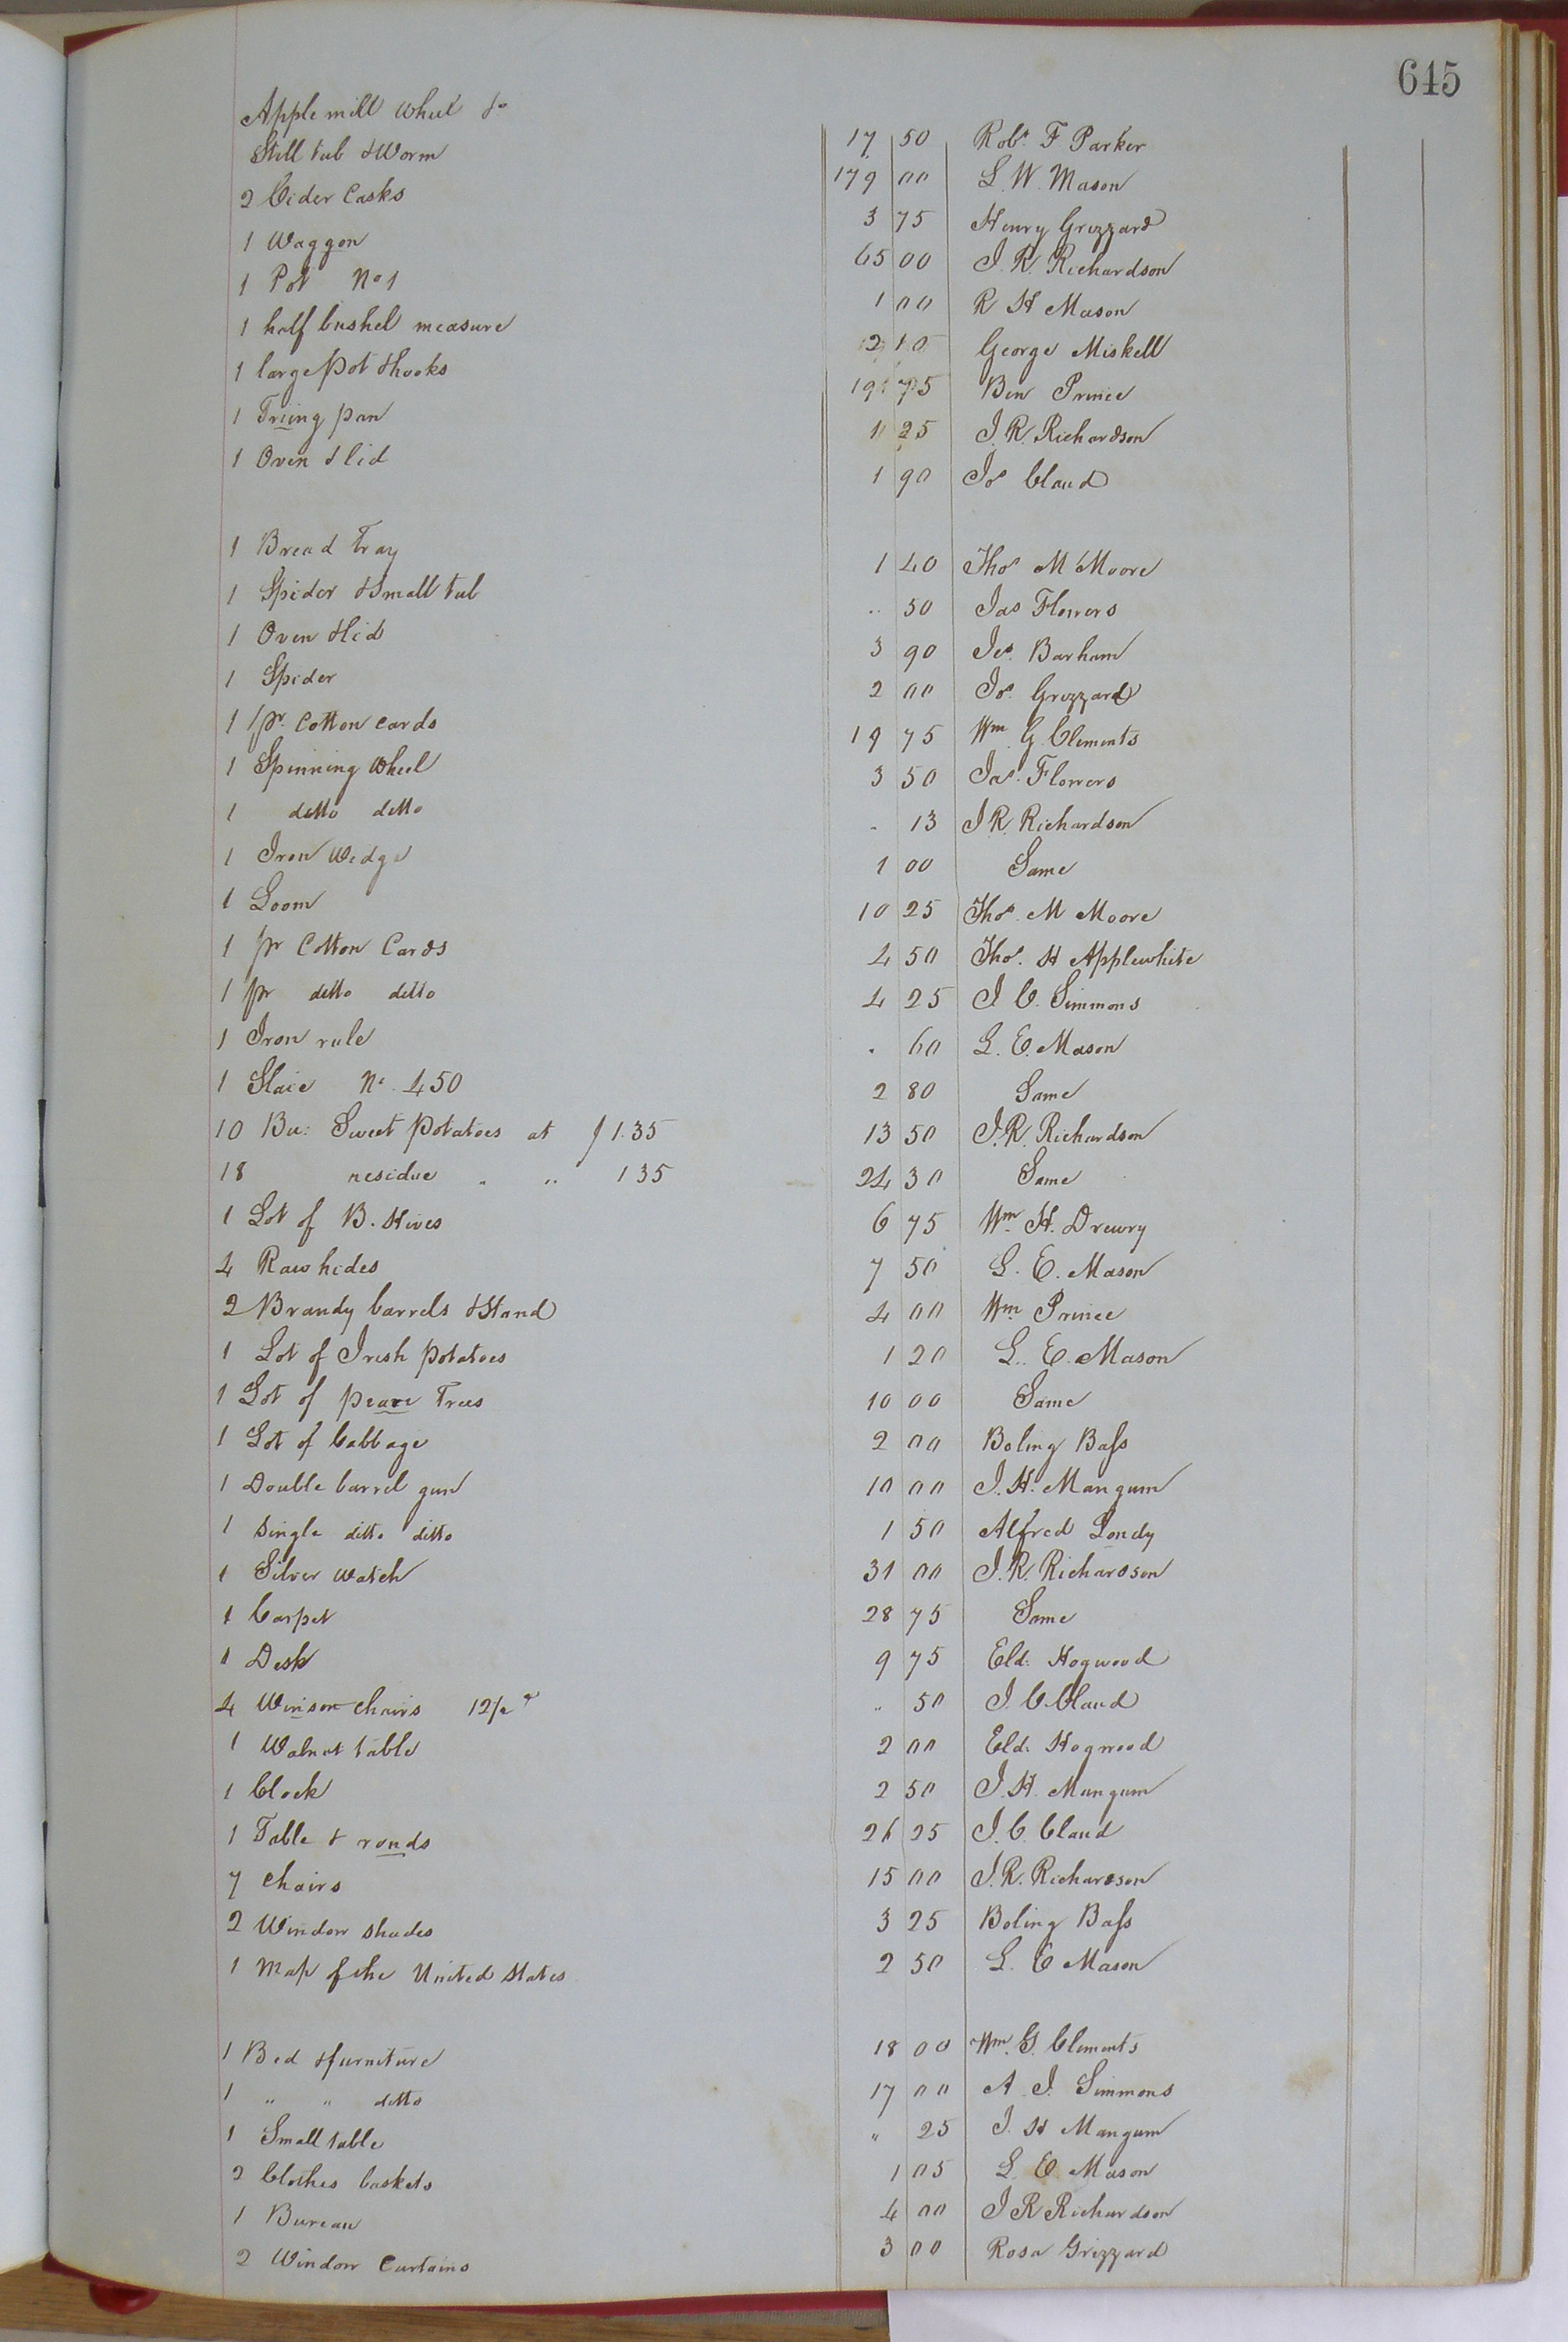 645
Apple mill wheel &c 17 50 Robt F Parker
Still tub & Worm 179 00 L. W. Mason
2 Cider Casks 3 75 Henry Grizzard
1 Waggon 65 00 J. R. Richardson
1 Pot No 1 1 00 R H Mason
1 half bushel measure 2 10 George Miskell
1 large Pot & hooks 19 75 Ben Prince
1 Triing pan 1 25 J. R. Richardson
1 Oven & lid 1 90 Jos Claud
1 Bread Tray 1 40 Thos M Moore
1 Spider & Small tub .. 50 Jas Flowers
1 Oven & lid 3 90 Jos. Barham
1 Spider 2 00 Jos. Grizzard
1 pr. Cotton cards 19 75 Wm G. Clements
1 Spinning Wheel 3 50 Jas. Flowers
1 ditto ditto . 13 J R. Richardson
1 Iron Wedge 1 00 Same
1 Loom 10 25 Thos. M Moore
1 pr Cotton Cards 4 50 Thos. H Applewhite
1 pr ditto ditto 4 25 J. C. Simmons
1 Iron rule . 60 L. E. Mason
1 Slaie No. 450 2 80 Same
10 Bu: Sweet Potatoes at $1.35 13 50 J. R. Richardson
18 residue " " 1 35 24 30 Same
1 Lot of B. Hives 6 75 Wm. H. Drewry
4 Raw hides 7 50 L. E. Mason
2 Brandy barrels & Stand 4 00 Wm Prince
1 Lot of Irish potatoes 1 20 L. E. Mason
1 Lot of peare Trees 10 00 Same
1 Lot of Cabbage 2 00 Boling Bass
1 Double barrel gun 10 00 J. H. Mangum
1 Single ditto ditto 1 50 Alfred Londy
1 Silver watch 31 00 J. R. Richardson
1 Carpet 28 75 Same
1 Desk 9 75 Eld. Hogwood
4 Winson chairs 12½ ¢ .. 50 J. C. Claud
1 Walnut table 2 00 Eld. Hogwood
1 Clock 2 50 J. H. Mangum
1 Table & ronds 26 25 J. C. Claud
7 Chairs 15 00 J. R. Richardson
2 Window shades 3 25 Boling Bass
1 Map of the United States 2 50 L. E Mason
1 Bed & furniture 18 00 Wm. G. Clements
1 " " ditto 17 00 A. J. Simmons
1 Small table " 25 J. H Mangum
2 Clothes baskets 1 05 L. E. Mason
1 Bureau 4 00 J R Richardson
2 Window Curtains 3 00 Rosa Grizzard